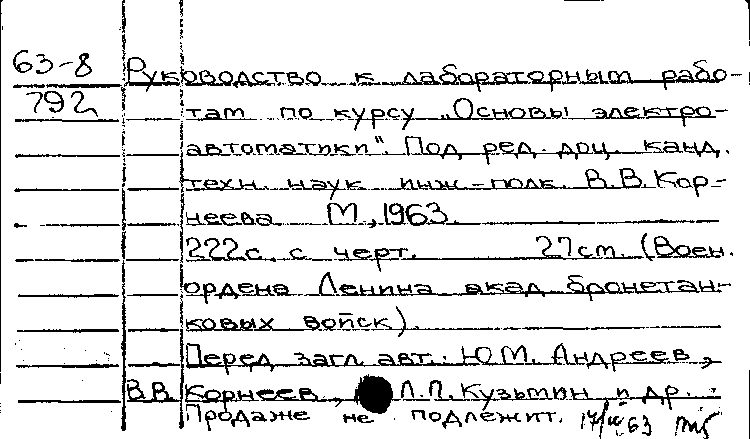 63-8 Руководство к лабораторным рабо-
792 там по курсу „Основы электро-
автоматики". Под ред. доц. канд.
техн. наук инж-полк. В.В. Кор-
неева М., 1963.
222с. с черт. 27см. (Воен.
ордена Ленина акад бронетан-
ковых войск).
Перед загл авт.: Ю.М. Андреев,
В.В. Корнеев, Л.П. Кузьмин и др. .
Продаже не подлежит. 17/IV 63